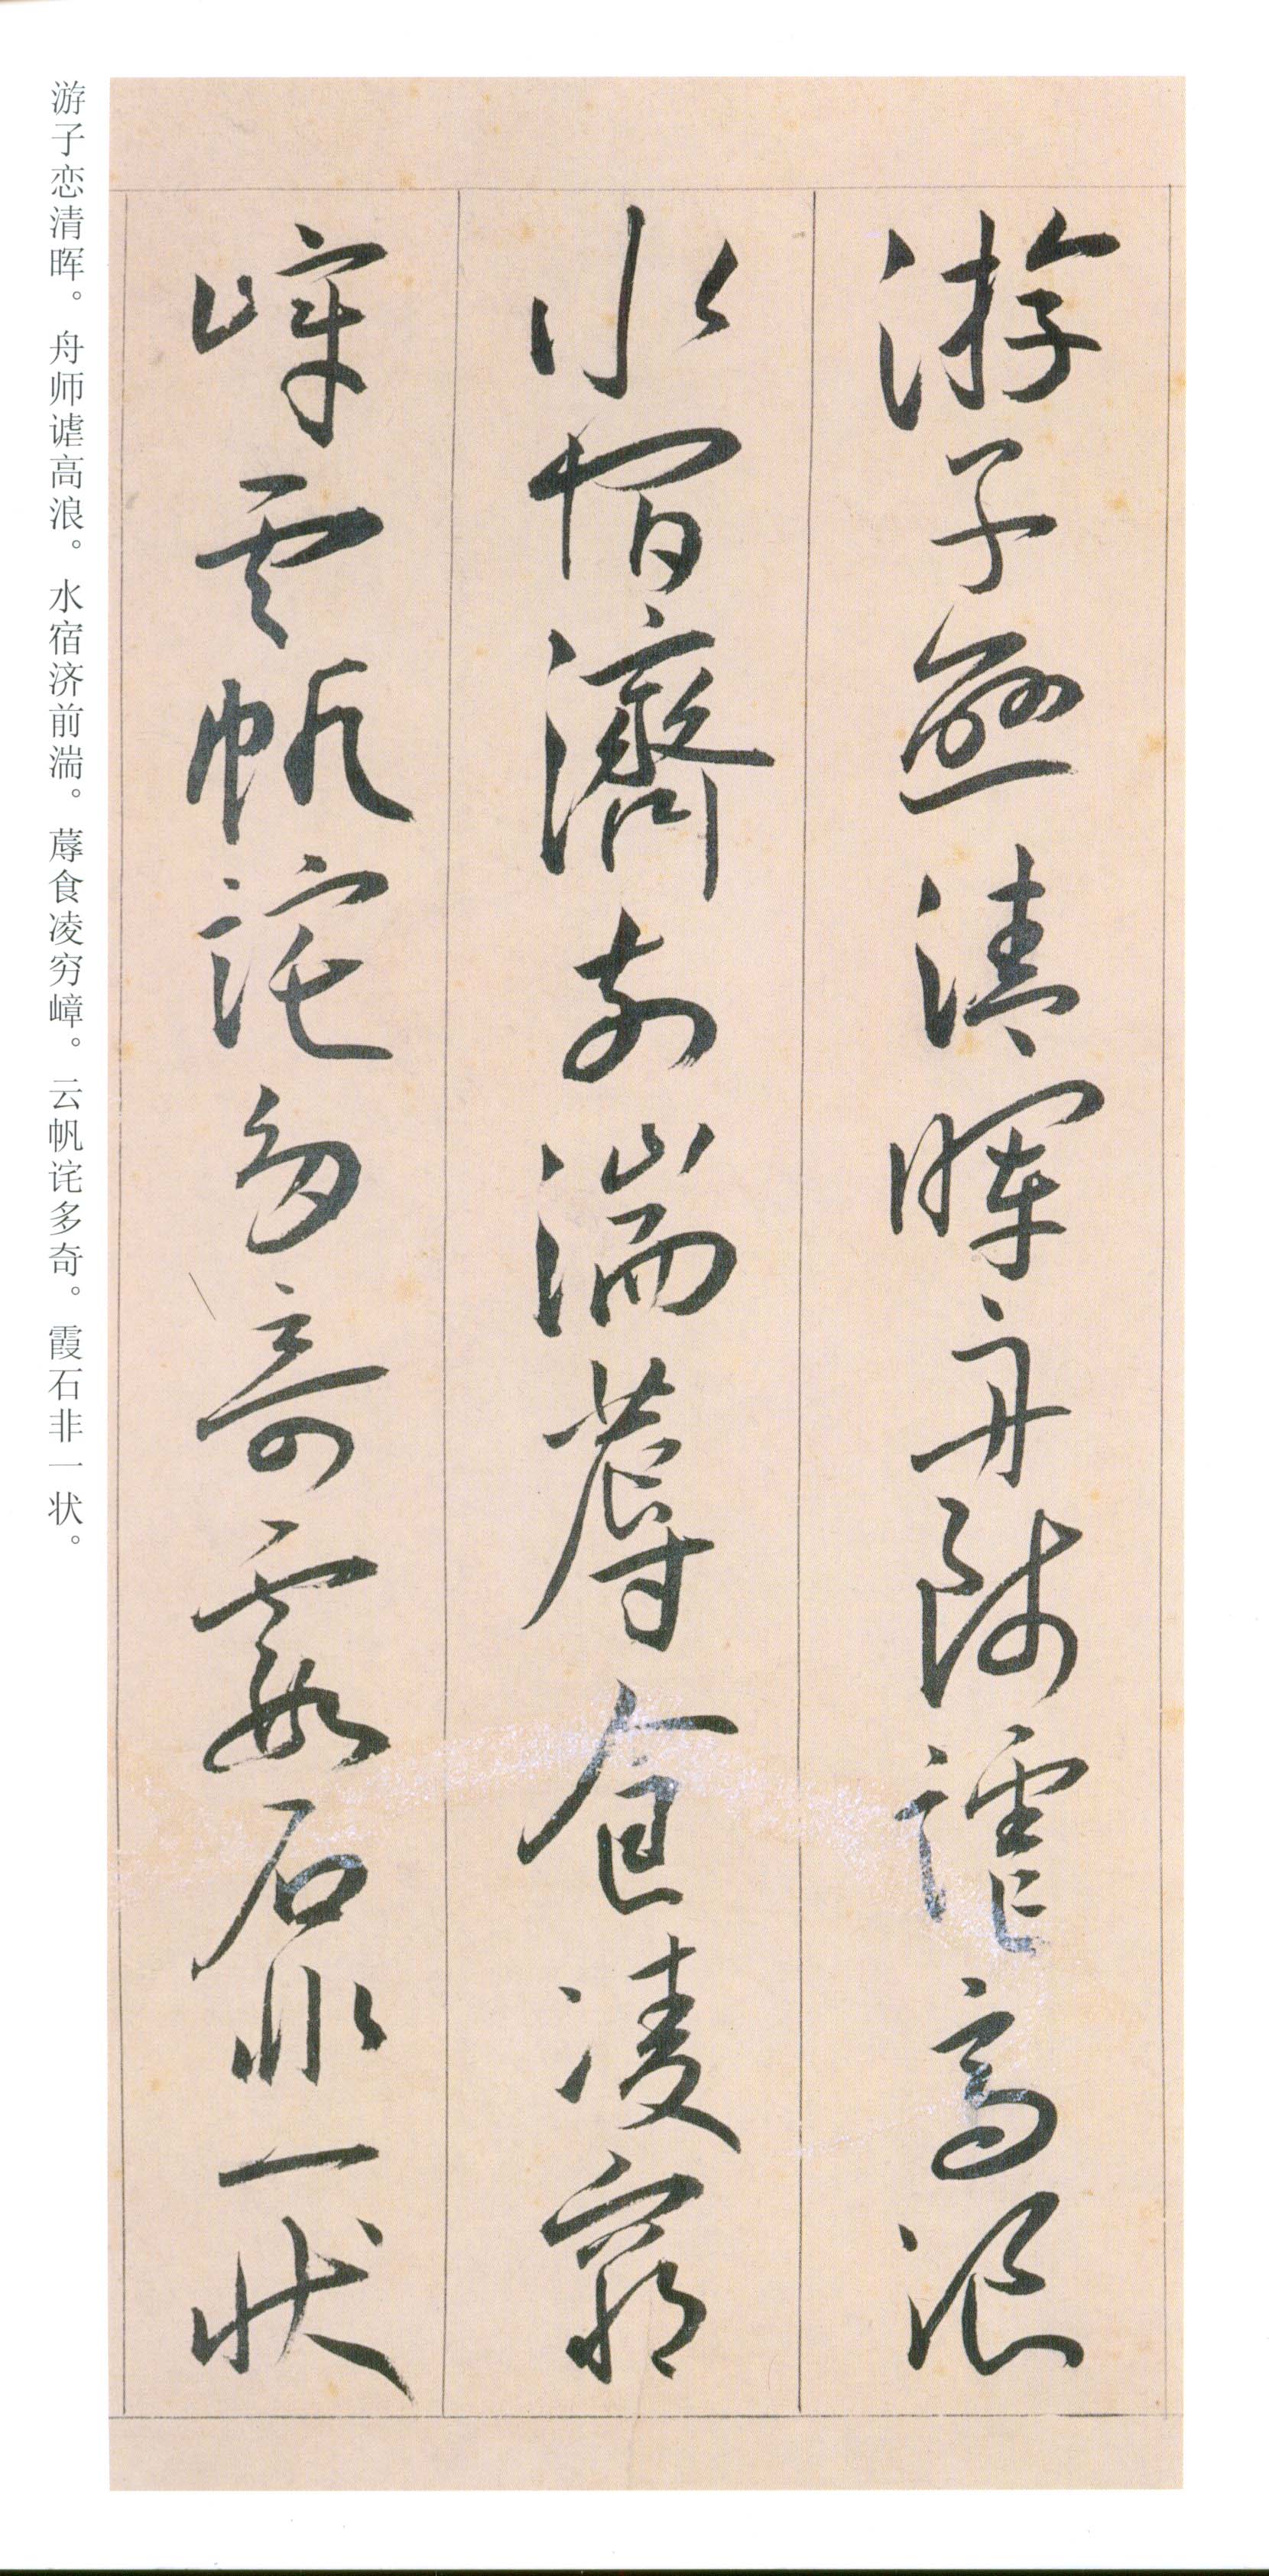 游子戀清暉舟師謔高浪
水宿濟前湍蓐食凌窮
嶂雲帆詫多奇霞石非一状
游子恋清晖。舟师谑高浪。水宿济前湍。蓐食凌穷嶂。云帆诧多奇。霞石非一状。